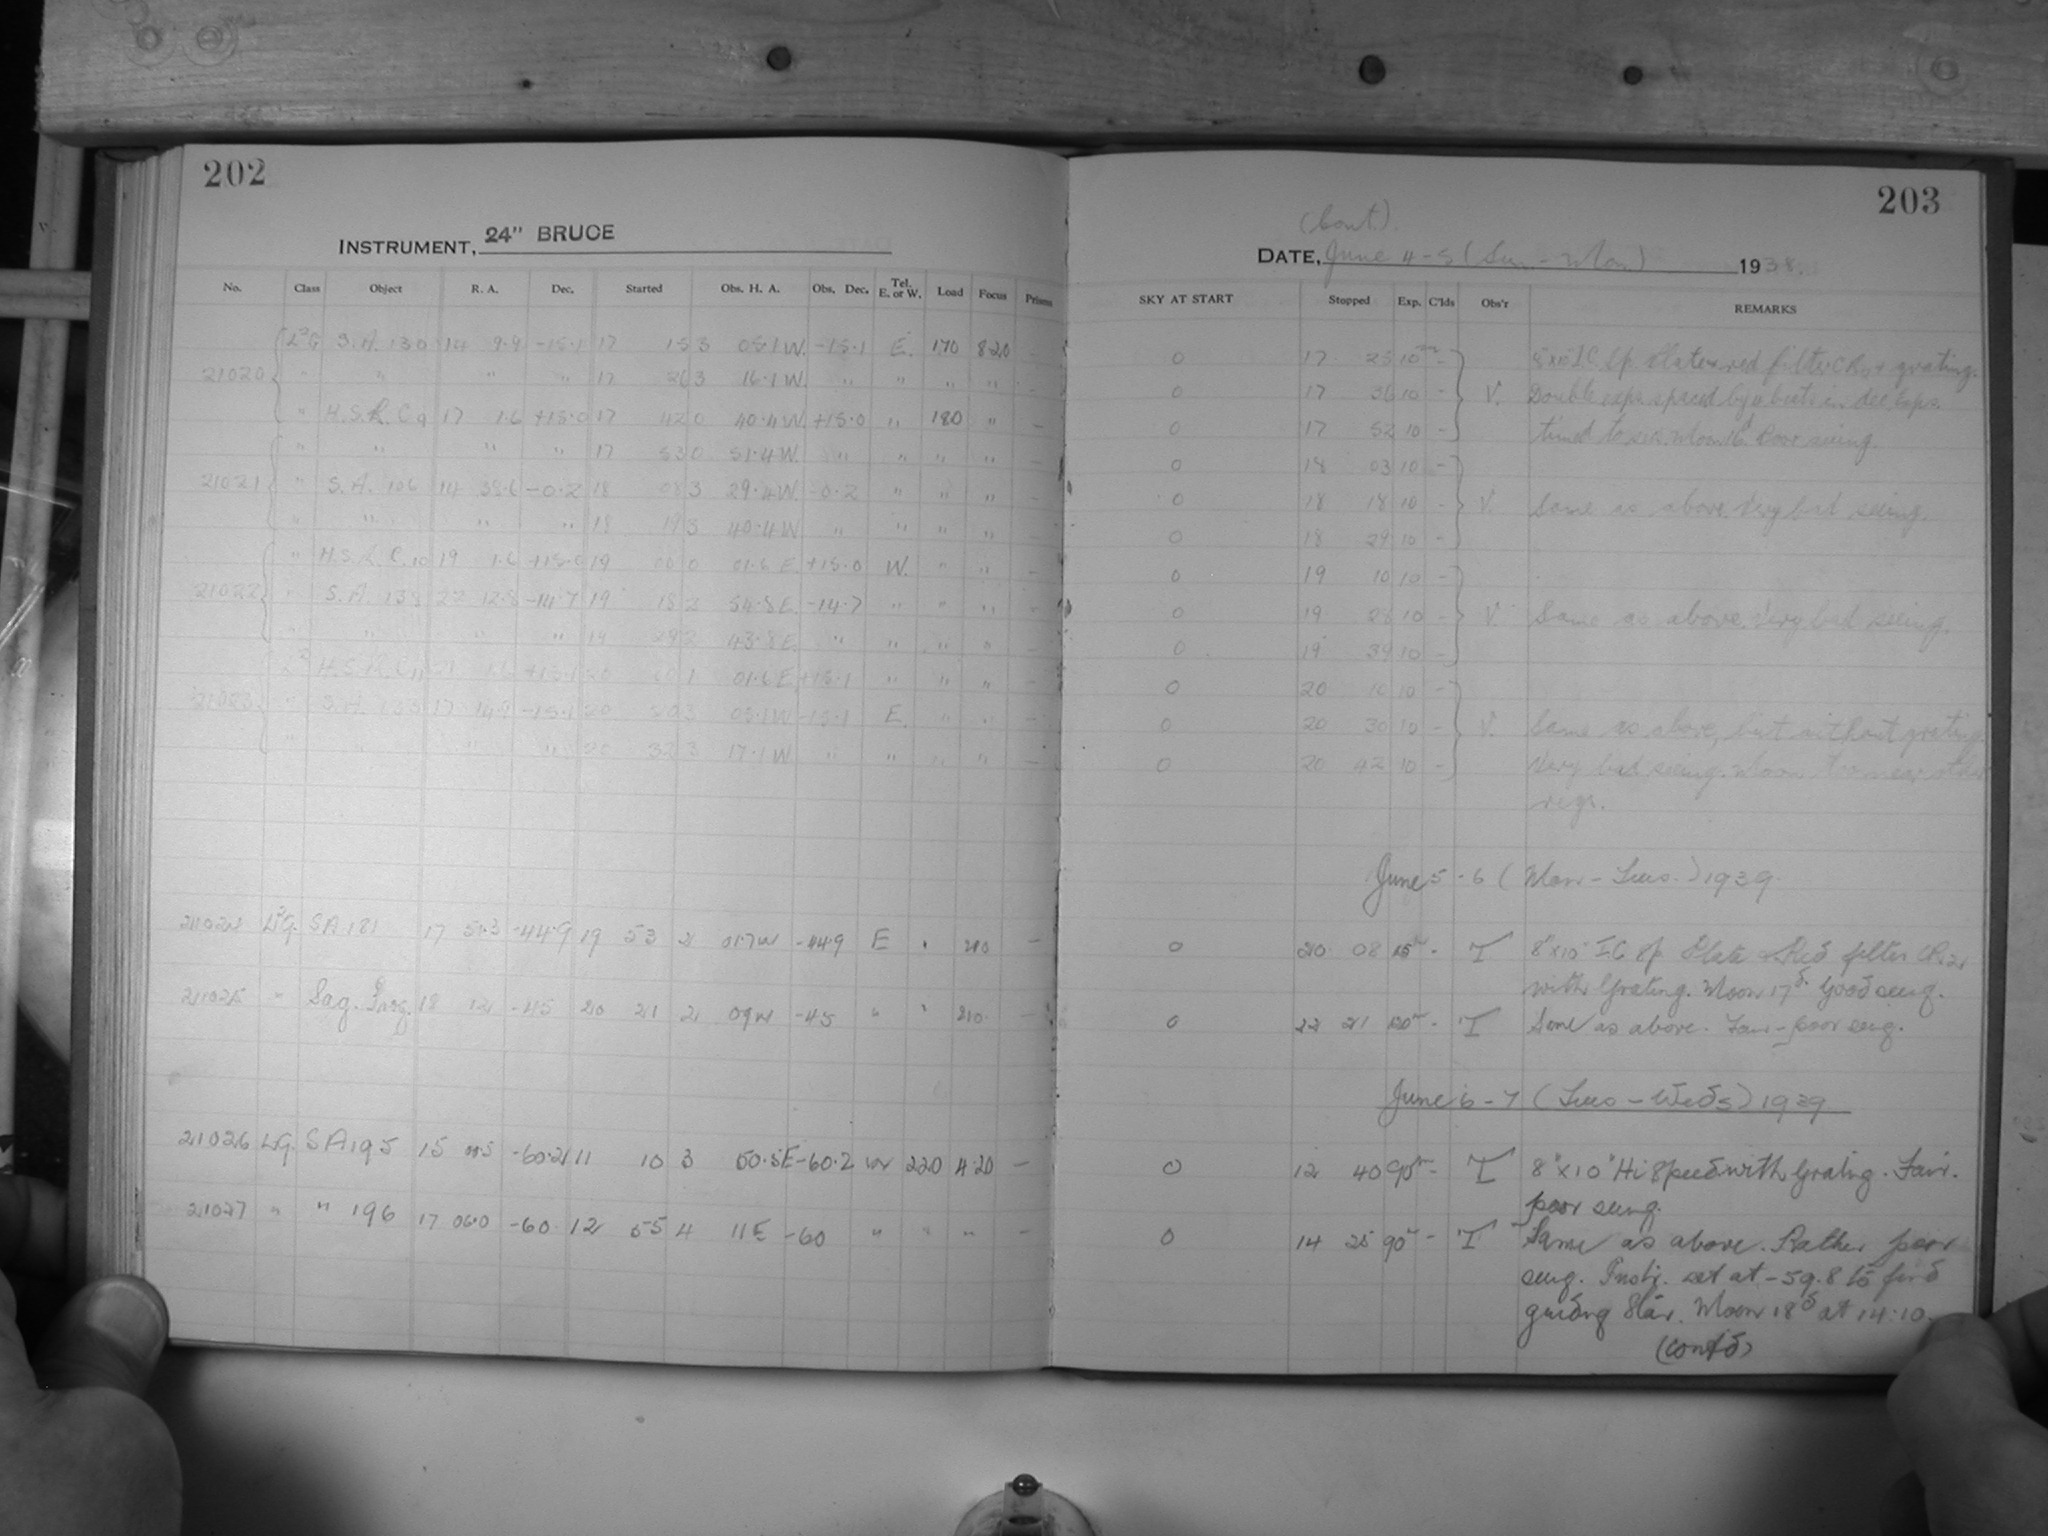 202
INSTRUMENT, 24" BRUCE
No. Class Object R. A. Dec. Started Obs. H. A. Obs. Dec. Tel. E. or W. Load Focus Prisms
S.A. 130 14 9.9 -15.1 17 15 3 05.1 W. -15.1 E. 170 8.20 -
21020 " " " " 17 26 3 16.1 W. " " " " -
" 17 1.6 +15.0 17 42 0 40.4 W. +15.0 " 180 " -
" " " " 17 53 0 51.4 W. " " " " -
21021 " S.A. 106 14 38.6 -0.2 18 08 3 29.4 W. -0.2 " " " -
" " " " 18 19 3 40.4 W " " " " -
" 19 1.6 +15.0 19 00 0 01.6 E. +15.0 W. " " -
21022 " S.A. 138 22 12.8 -14.7 19 18 2 54.8 E. -14.7 " " " -
" " " " 19 29 2 43.8 E. " " " " -
01.6 E +15.1 " " " -
21023 " 17 14.9 -15.1 20 20 3 05.1 W -15.1 E. " " -
" " " " 20 32 3 17.1 W " " " " -
21024 SA 181 17 51.3 -44.9 19 53 2 01.7 W -44.9 E " 210 -
21025 " Sag. 18 12 -45 20 21 2 09 W -45 " " 210 -
21026 SA 195 15 -60.2 11 10 3 50.5 E -60.2 W 220 4.20 -
21027 " " 196 17 06.0 -60 12 55 4 11 E -60 " " " -
203
(Cont.)
DATE, June 4-5 (Sun - Mon) 1938.
SKY AT START Stopped Exp. C'lds Obs'r REMARKS
0 17 25 10m - 8"x10" I C Sp. Plate + red filter + grating.
0 17 36 10 - V. Double exps. spaced by in dec. Exps.
0 17 52 10 - Poor seeing.
0 18 03 10 -
0 18 18 10 - V. Same as above. Very bad seeing.
0 18 29 10 -
0 19 10 10 -
0 19 28 10 - V. Same as above. Very bad seeing.
0 19 39 10 -
0 20 10 10 -
0 20 30 10 - V. Same as above, but without grating.
0 20 42 10 - Very bad seeing. Moon near
regs.
June 5-6 (Mon - Tues.) 1939.
0 20 08 15m - T 8"x10" I C Sp. Plate + Red filter
with Grating. Moon 17d. Good seeg.
0 22 21 120m - T Same as above. Fair-poor seeg.
June 6-7 (Tues - Weds) 1939
0 12 40 90m - T 8"x10" Hi Speed with Grating. Fair.
poor seeing.
0 14 25 90m - T Same as above. Rather poor
seeg. Instr. set at -59.8 to find
guiding star. Moon 18d at 14:10.
(contd)